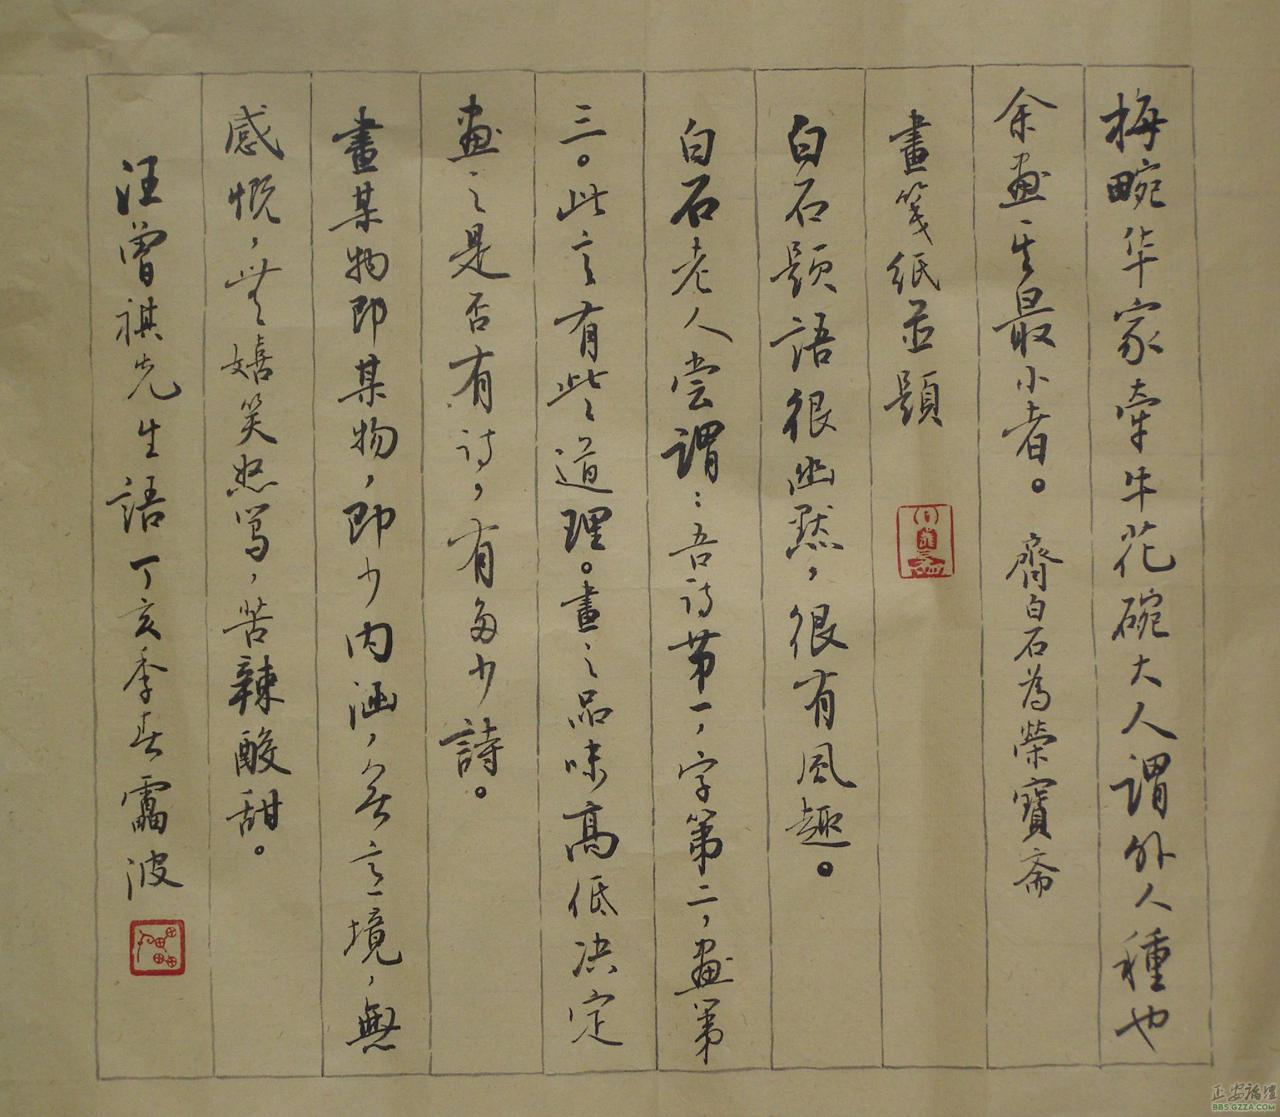 梅畹华家牵牛花碗大人謂外人種也
余画其最小者。 齊白石為榮寶斋
畫箋紙並題
白石题語很幽默，很有風趣。
白石老人尝謂：吾诗第一，字第二，画第
三。此言有些道理。畫之品味高低决定
画之是否有诗，有多少詩。
畫某物即某物，即少内涵，无意境，無
感慨，無嬉笑怒骂，苦辣酸甜。
汪曾祺先生語 丁亥季春 靁波
正安論壇
BBS.GZZA.COM